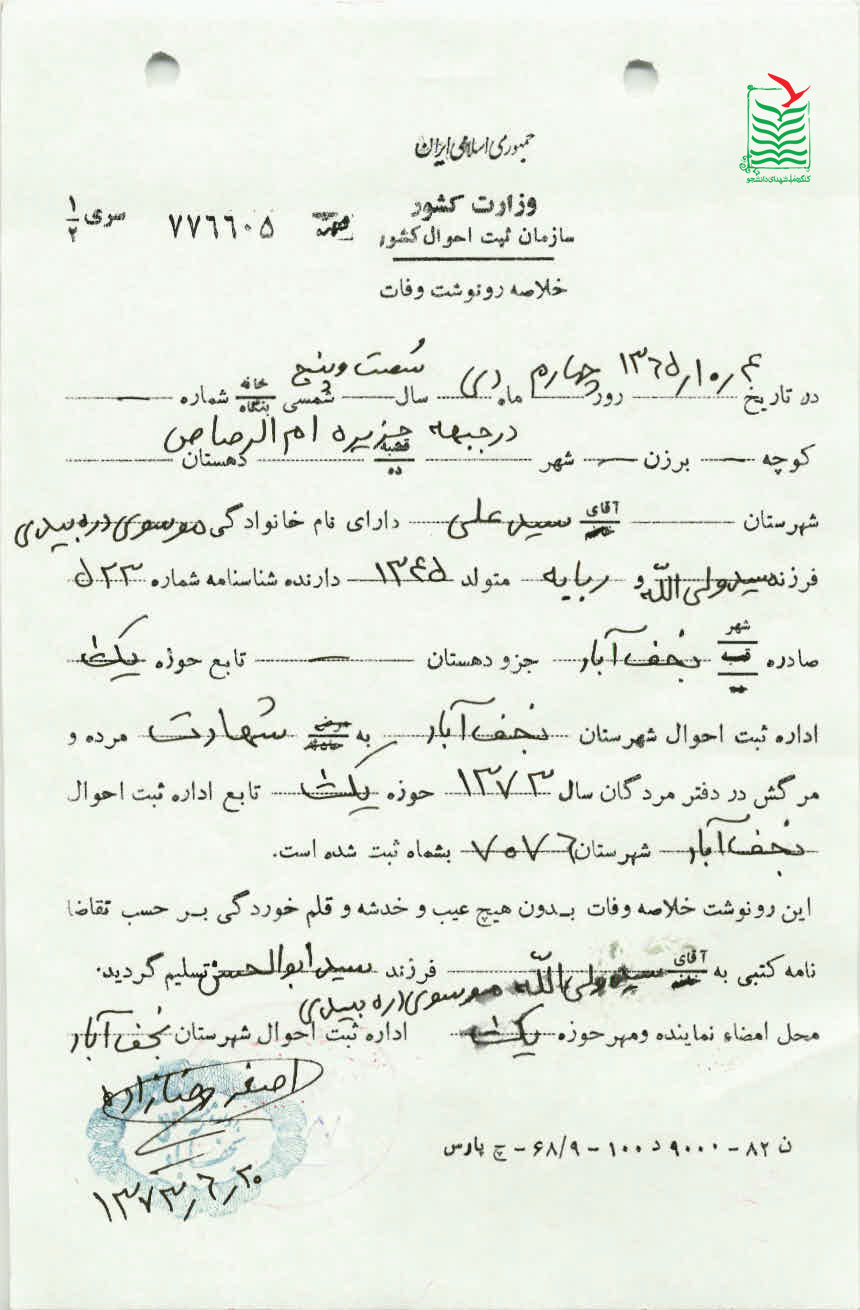 کنگره ملی شهدای دانشجو
جمهوری اسلامی ایران
وزارت کشور
سازمان ثبت احوال کشور
سری ۱/۲ ۷۷٦٦۰۵
خلاصه رونوشت وفات
در تاریخ ۱۳٦۵٫۱۰٫۴ روز چهارم ماه دی سال شصت و پنج شمسی خانه بنگاه شماره —
کوچه — برزن — شهر در جبهه جزیره ام الرصاص قصبه ده دهستان
شهرستان — آقای سید علی دارای نام خانوادگی موسوی دره بیدی
فرزند سید ولی الله و ربابه متولد ۱۳۴۵ دارنده شناسنامه شماره ۵۲۳
صادره شهر قصبه نجف آباد جزو دهستان — تابع حوزه یک
اداره ثبت احوال شهرستان نجف آباد به مرض شهادت مرده و
مرگش در دفتر مردگان سال ۱۳۷۳ حوزه یک تابع اداره ثبت احوال
نجف آباد شهرستان ۷۰۷٦ بشماه ثبت شده است.
این رونوشت خلاصه وفات بدون هیچ عیب و خدشه و قلم خوردگی بر حسب تقاضا
نامه کتبی به آقای سید ولی الله موسوی دره بیدی فرزند سید ابوالحسن تسلیم گردید.
محل امضاء نماینده ومهر حوزه یک اداره ثبت احوال شهرستان نجف آباد
اصغر
ن ۸۲ – ۹۰۰۰ د ۱۰۰ – ۶۸/۹ – چ پارس
۱۳۷۳٫٦٫۲۰